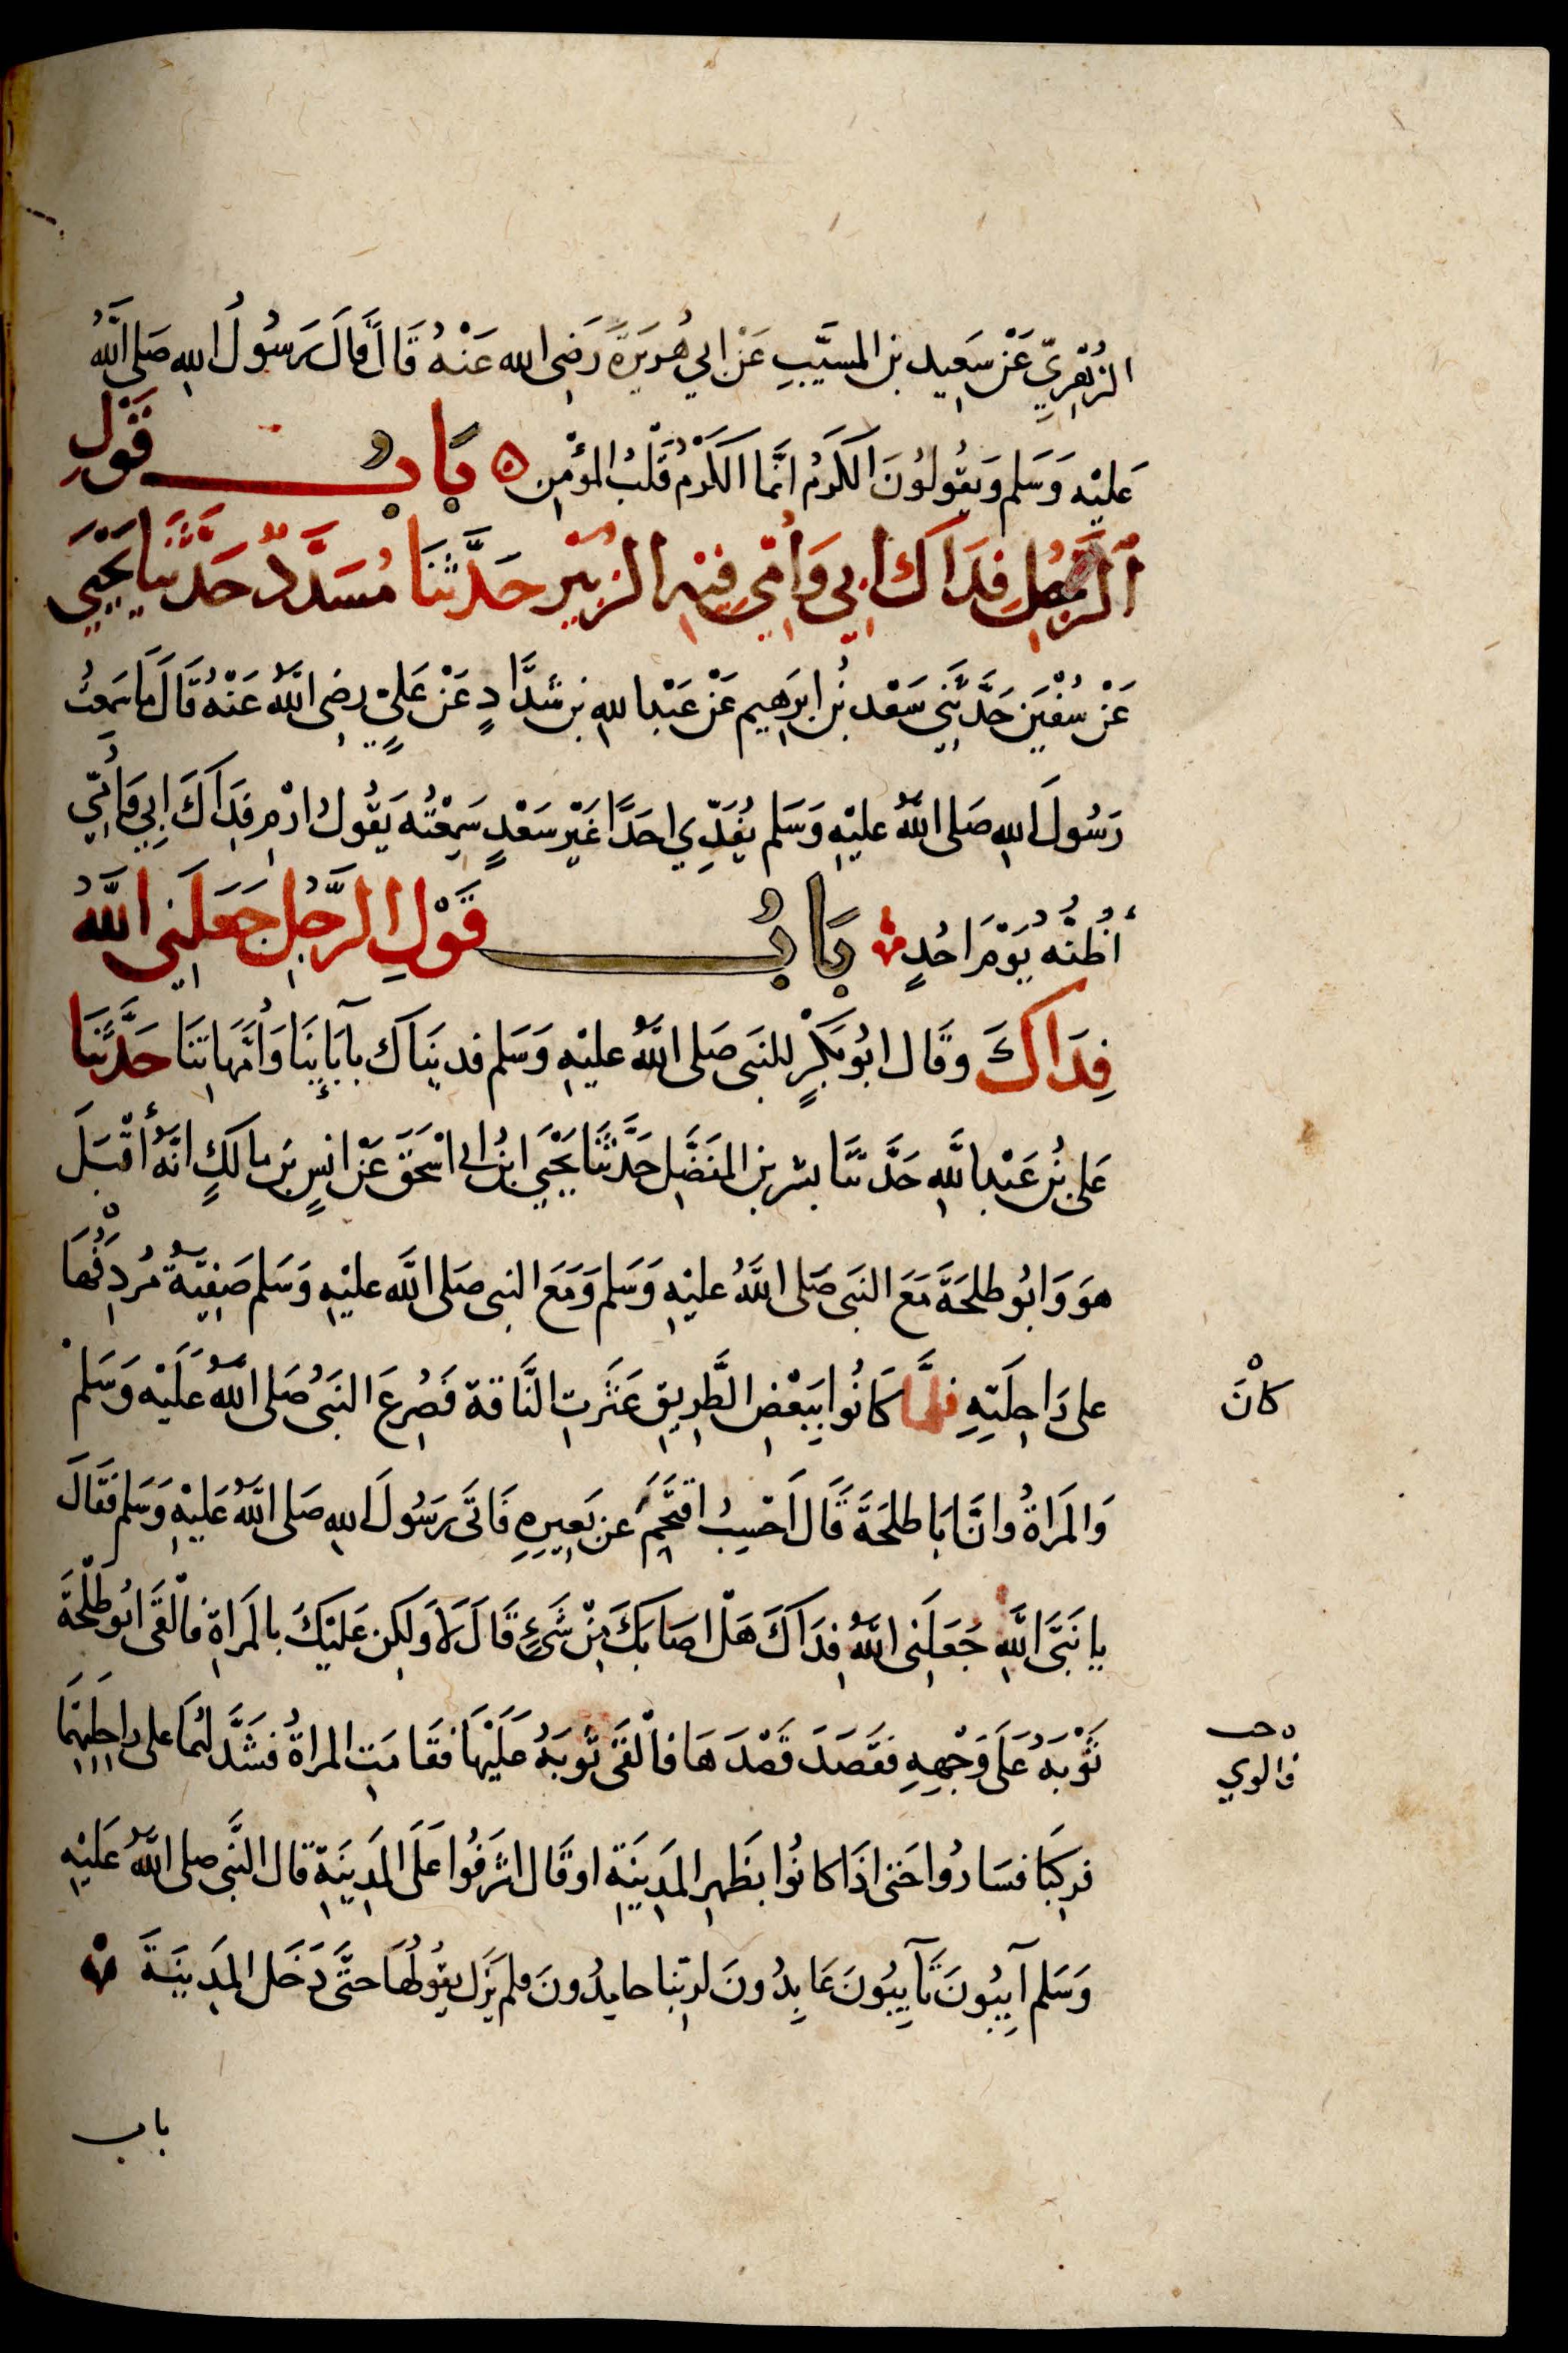 الزُّهْرِيِّ عَنْ سَعِيدِ بنِ المسَيَّبِ عَنْ ابي هُرَيْرَةَ رَضِى الله عَنْهُ قَالَ قَالَ رَسُولُ اللهِ صَلى اللَّهُ
عَليْهِ وَسَلم وَيَقُولُونَ الكَرْمُ انَّمَا الكَرْمُ قَلْبُ المؤْمِنِ ۞ بَابُ قَوْلِ
الرَّجُلِ فِدَاكَ ابِى وَامِّى فِيْهِ الزُّبَيْرِ حَدَّثَنَا مُسَدَّدٌ حَدَّثَنَا يَحْيَى
عَنْ سُفْيٰنَ حَدَّثَنِي سَعْد بْنُ ابرَهِيم عَنْ عَبْدِ اللهِ بن شَدَّادٍ عَنْ عَلِيٍّ رضِى اللَّهُ عَنْهُ قَالَ مَا سَمِعْتُ
رَسُولَ اللهِ صَلى اللَّهُ عليْهِ وَسَلم يُفَدِّي احَدًا غَيْرَ سَعْدٍ سَمِعْتُهُ يَقُولُ ارْمِ فِدَاكَ ابِي وَأُمِّي
أَظُنُّهُ يَوْمَ احُدٍ بَابُ قَوْلِ الرَّجُلِ جَعَلَنِى اللَّهُ
فِدَاكَ وقَال ابُو بَكْرٍ للنَبى صَلى اللَّهُ عليْهِ وَسَلم فديْنَاك بآبَائِنَا وَأُمَّهَاتِنَا حَدَّثَنَا
عَلى بْنُ عَبْدِ اللَّهِ حَدَّثَنَا بشر بن المفَضَّلِ حَدَّثَنَا يَحْيَى ابنُ ابى اسْحٰقَ عَنْ انسِ بن مالكٍ انَّهُ أقْبَلَ
هوَ وَابُو طلحَةَ مَعَ النَبى صَلى اللَّهُ عليْهِ وَسَلم وَمَعَ النبى صَلى اللَّه عليْهِ وَسَلم صَفِيَّةُ مُرْدِفُهَا
على رَاحِلَتِهِ فلمَّا كَانُوا بِبَعْضِ الطَّرِيقِ عَثَرَتِ النَّاقة فَصُرِعَ النَبىُّ صَلى اللَّهُ عَلَيْهِ وَسَلم
كانَ
وَالمَرَاةُ وانَّ ابَا طلحَةَ قَالَ احْسِبُ اقتَحَمَ عن بَعِيرِهِ فَاتَى رَسُولَ اللهِ صَلى اللَّهُ عَليْهِ وَسَلم فَقَالَ
يا نَبَىَّ اللَّهِ جَعَلَنِى اللَّهُ فِدَاكَ هَلْ اصَابَكَ مِنْ شَىْءٍ قَالَ لَا وَلكِن عَليْكَ بالمَراةِ فألْقَى ابُو طَلْحَةَ
ثَوْبَهُ عَلَى وَجْهِهِ فقَصَدَ قَصْدَهَا فألْقَى ثَوْبَهُ عَلَيْهَا فقَامَتِ المراةُ فشَدَّ لهُمَا على رَاحِلتِهِمَا
فالوي
فرَكِبَا فسَارُوا حَتى اذَا كانُوا بظَهرِ المَدِينَةِ او قَال اشْرَفُوا عَلَى المَدِينَةِ قال النَّبى صلى اللَّهُ عَليْهِ
وَسَلم آيِبُونَ تَآيِبُونَ عَابِدُونَ لرَبِّنا حامِدُونَ فلم يَزَل يقُولُهَا حَتَّى دَخَل المَدِينَةَ
باب